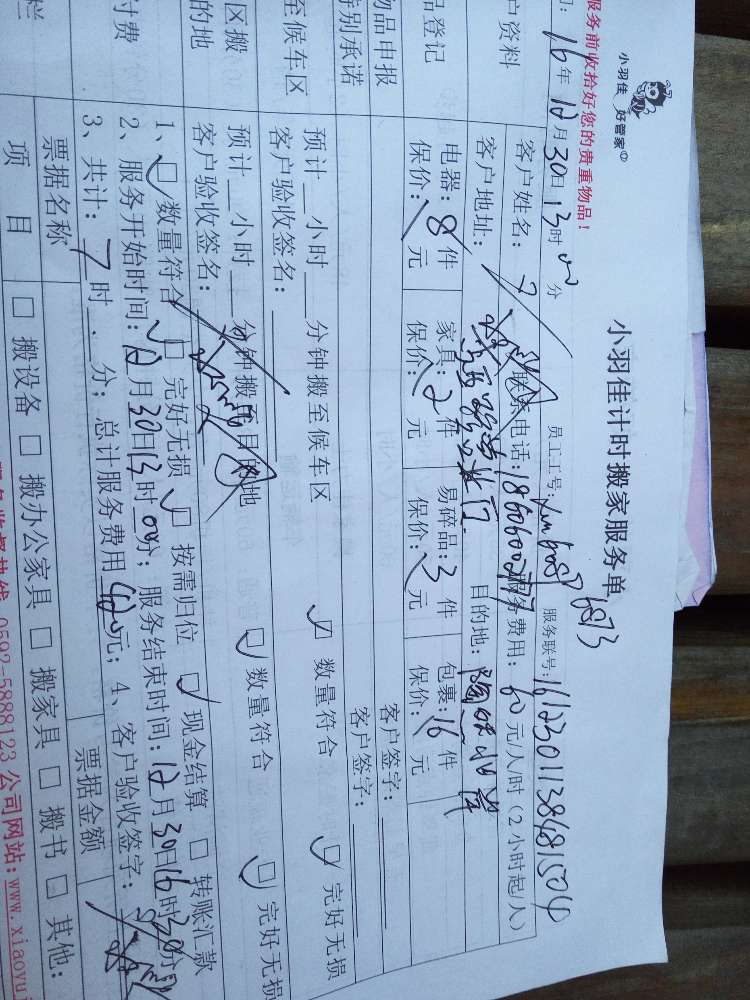 小羽佳 好管家
小羽佳计时搬家服务单
服务前收拾好您的贵重物品！
员工工号：
服务联号：161230113848150
16年12月30日13时00分
户资料
客户姓名：
联系电话：
服务费用：60元/人/时（2小时起/人）
客户地址：
目的地：
品登记
电器：8件 家具：2件 易碎品：3件 包裹：16件
保价：元 保价：元 保价：元 保价：元
物品申报
客户签字：
特别承诺
客户签字：
至候车区
预计__小时__分钟搬至候车区 ☑ 数量符合 ☑ 完好无损
客户验收签名：
区搬
的地
预计__小时__分钟搬至目的地 ☑ 数量符合 ☑ 完好无损
客户验收签名：
付费
1、☑ 数量符合 ☑ 完好无损 ☑ 按需归位 ☑ 现金结算 □ 转账汇款
2、服务开始时间：12月30日13时00分；服务结束时间：12月30日16时30分
3、共计：7时__分；总计服务费用420元；4、客户验收签字：
栏
票据名称
票据金额
项 目
□ 搬设备 □ 搬办公家具 □ 搬家具 □ 搬书 □ 其他：
0592-5888123 公司网站：www.xiaoyuj